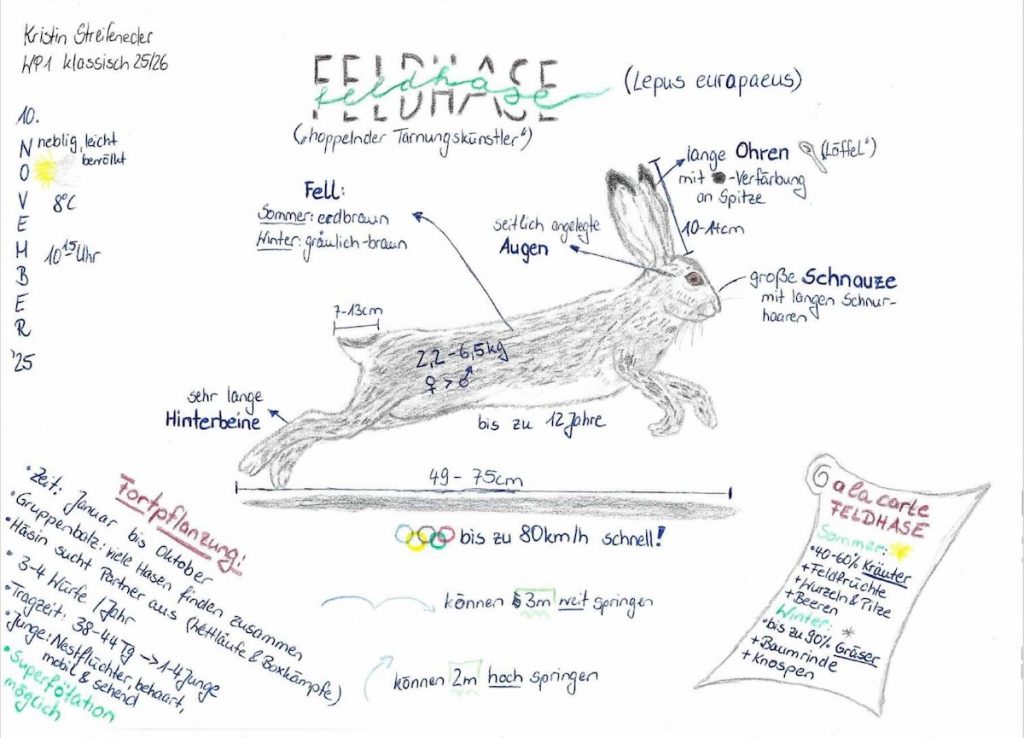 Kristin Streifeneder
WP1 klassisch 25/26
FELDHASE
feldhase
(Lepus europaeus)
("hoppelnder Tarnungskünstler")
10.
NOVEMBER
'25
neblig, leicht
bewölkt
8°C
10¹⁵ Uhr
Fell:
Sommer: erdbraun
Winter: gräulich-braun
seitlich angelegte
Augen
lange Ohren ("Löffel")
mit -Verfärbung
an Spitze
10-14cm
große Schnauze
mit langen Schnur-
haaren
7-13cm
2,2-6,5kg
♀ > ♂
sehr lange
Hinterbeine
bis zu 12 Jahre
49-75cm
bis zu 80km/h schnell!
können 3m weit springen
können 2m hoch springen
Fortpflanzung:
• Zeit: Januar bis Oktober
• Gruppenbalz: viele Hasen finden zusammen
• Häsin sucht Partner aus (Wettläufe & Boxkämpfe)
• 3-4 Würfe / Jahr
• Tragzeit: 38-44 Tg → 1-4 Junge
• Junge: Nestflüchter, behaart,
mobil & sehend
• Superfötation
möglich
a la carte
FELDHASE
Sommer:
• 40-60% Kräuter
+ Feldfrüchte
+ Wurzeln & Pilze
+ Beeren
Winter:
• bis zu 90% Gräser
+ Baumrinde
+ Knospen